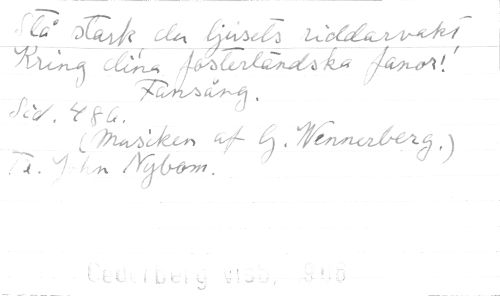 Stå stark du ljusets riddarvakt
Kring dina fosterländska fanor!
Fansång.
Sid. 486.
(Musiken af G. Wennerberg.)
Te. John Nybom.
Cederberg